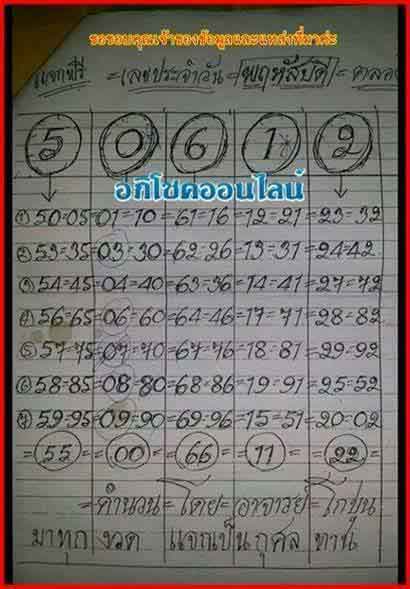 ขอขอบคุณเจ้าของข้อมูลและแหล่งที่มาค่ะ
แจกฟรี =เลขประจำวัน=พฤหัสบดี=
5 0 6 1 2
อภิโชคออนไลน์
① 50-05=01-10=61-16=12-21=23-32
② 53-35=03-30=62-26=13-31=24-42
③ 54-45=04-40=63-36=14-41=27-72
④ 56-65=06-60=64-46=17-71=28-82
⑤ 57-75=07-70=67-76=18-81=29-92
⑥ 58-85=08-80=68-86=19-91=25-52
⑦ 59-95=09-90=69-96=15-51=20-02
=55= =00= =66= =11= =22=
=คำนวน=โดย=อาจารย์=
มาทุก งวด แจกเป็น กุศล ทาน